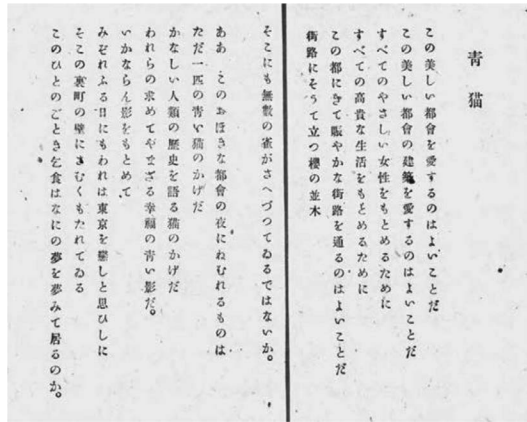 青猫
この美しい都會を愛するのはよいことだ
この美しい都會の建築を愛するのはよいことだ
すべてのやさしい女性をもとめるために
すべての高貴な生活をもとめるために
この都にきて賑やかな街路を通るのはよいことだ
街路にそうて立つ櫻の並木
そこにも無數の雀がさへづつてゐるではないか。
ああ このおほきな都會の夜にねむれるものは
ただ一匹の青い猫のかげだ
かなしい人類の歷史を語る猫のかげだ
われらの求めてやまざる幸福の青い影だ。
いかならん影をもとめて
みぞれふる日にもわれは東京を戀しと思ひしに
そこの裏町の壁にさむくもたれてゐる
このひとのごとき乞食はなにの夢を夢みて居るのか。